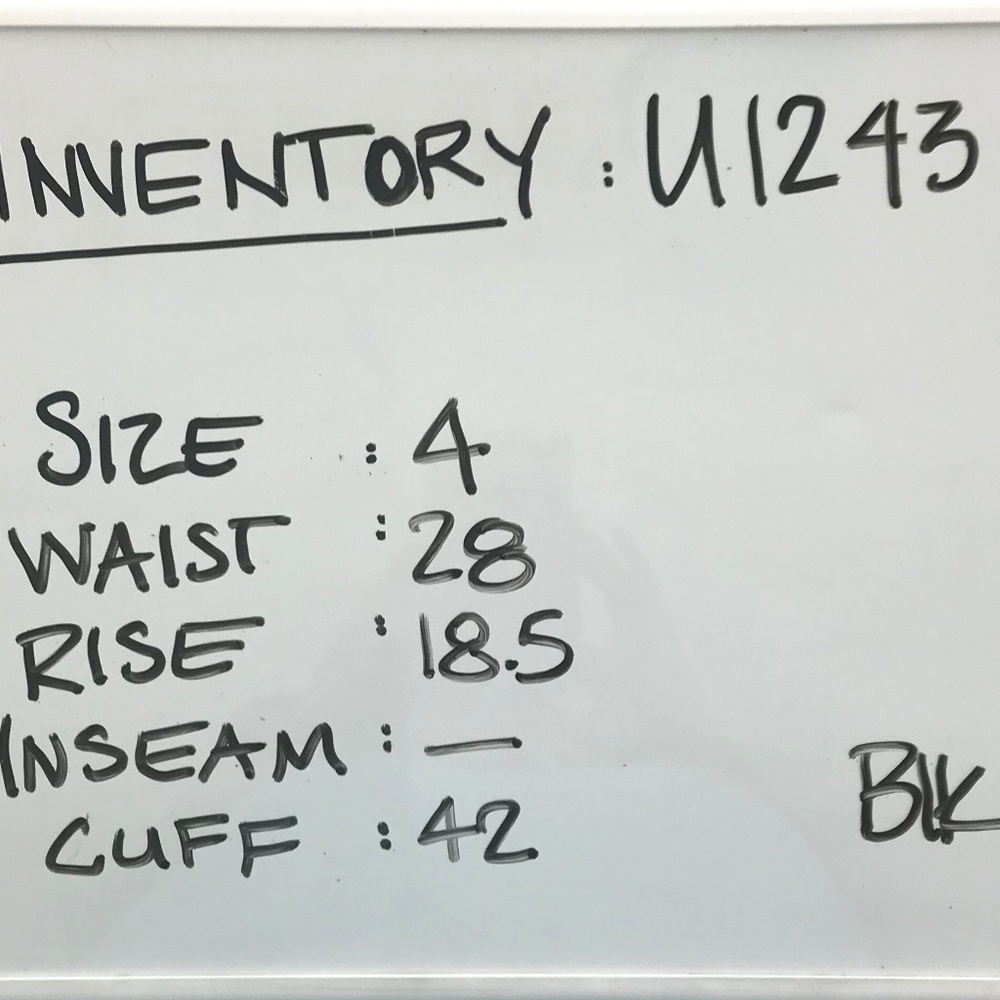 INVENTORY : U1243
SIZE : 4
WAIST : 28
RISE : 18.5
INSEAM : —
BLK
CUFF : 42